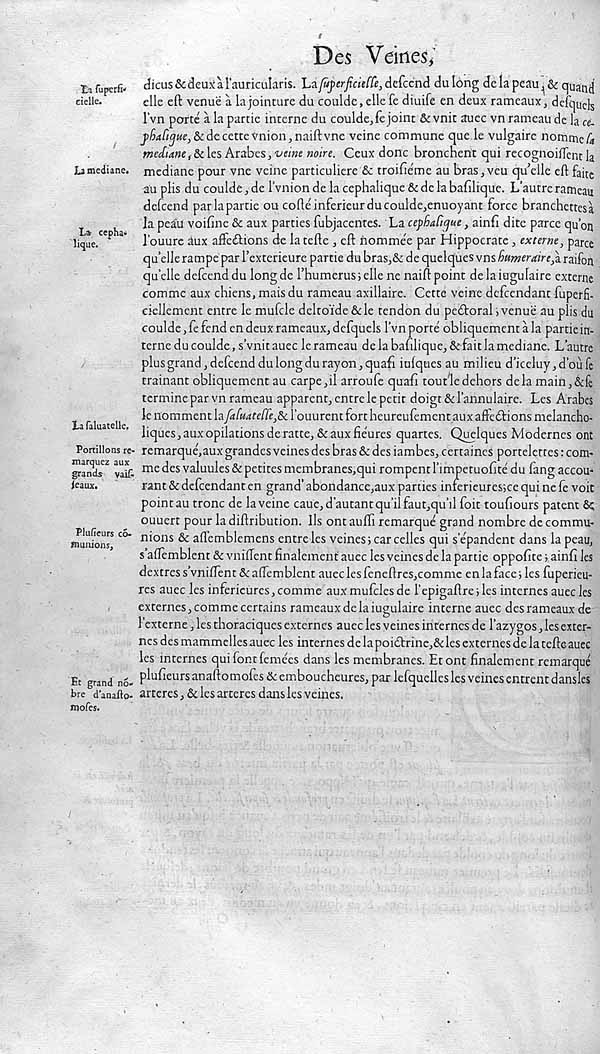 Des Veines,
La superfi-
cielle.
dicus & deux à l'auricularis. La ſuperficielle, deſcend du long de la peau, & quand
elle eſt venuë à la jointure du coulde, elle ſe diuiſe en deux rameaux, deſquels
l'vn porté à la partie interne du coulde, ſe joint & vnit auec vn rameau de la ce-
phalique, & de cette vnion, naiſt vne veine commune que le vulgaire nomme ſa
mediane, & les Arabes, veine noire. Ceux donc bronchent qui recognoiſſent la
La mediane.
mediane pour vne veine particuliere & troiſiéme au bras, veu qu'elle eſt faite
au plis du coulde, de l'vnion de la cephalique & de la baſilique. L'autre rameau
deſcend par la partie ou coſté inferieur du coulde, enuoyant force branchettes à
la peau voiſine & aux parties ſubjacentes. La cephalique, ainſi dite parce qu'on
La cepha-
lique.
l'ouure aux affections de la teſte, eſt nommée par Hippocrate, externe, parce
qu'elle rampe par l'exterieure partie du bras, & de quelques vns humeraire, à raiſon
qu'elle deſcend du long de l'humerus; elle ne naiſt point de la iugulaire externe
comme aux chiens, mais du rameau axillaire. Cette veine deſcendant ſuperfi-
ciellement entre le muſcle deltoïde & le tendon du pectoral; venuë au plis du
coulde, ſe fend en deux rameaux, deſquels l'vn porté obliquement à la partie in-
terne du coulde, s'vnit auec le rameau de la baſilique, & fait la mediane. L'autre
plus grand, deſcend du long du rayon, quaſi iuſques au milieu d'iceluy, d'où ſe
trainant obliquement au carpe, il arrouſe quaſi tout le dehors de la main, & ſe
termine par vn rameau apparent, entre le petit doigt & l'annulaire. Les Arabes
le nomment la ſaluatelle, & l'ouurent fort heureuſement aux affections melancho-
La ſaluatelle.
liques, aux opilations de ratte, & aux fiéures quartes. Quelques Modernes ont
Portillons re-
marquez aux
grands vaiſ-
ſeaux.
remarqué, aux grandes veines des bras & des iambes, certaines portelettes: com-
me des valuules & petites membranes, qui rompent l'impetuoſité du ſang accou-
rant & deſcendant en grand' abondance, aux parties inferieures; ce qui ne ſe voit
point au tronc de la veine caue, d'autant qu'il faut, qu'il ſoit touſiours patent &
ouuert pour la diſtribution. Ils ont auſſi remarqué grand nombre de commu-
Pluſieurs cõ-
munions,
nions & aſſemblemens entre les veines; car celles qui s'épandent dans la peau,
s'aſſemblent & vniſſent finalement auec les veines de la partie oppoſite; ainſi les
dextres s'vniſſent & aſſemblent auec les ſeneſtres, comme en la face; les ſuperieu-
res auec les inferieures, comme aux muſcles de l'epigaſtre; les internes auec les
externes, comme certains rameaux de la iugulaire interne auec des rameaux de
l'externe, les thoraciques externes auec les veines internes de l'azygos, les exter-
nes des mammelles auec les internes de la poictrine, & les externes de la teſte auec
les internes qui ſont ſemées dans les membranes. Et ont finalement remarqué
Et grand nõ-
bre d'anaſto-
moſes.
pluſieurs anaſtomoſes & emboucheures, par leſquelles les veines entrent dans les
arteres, & les arteres dans les veines.